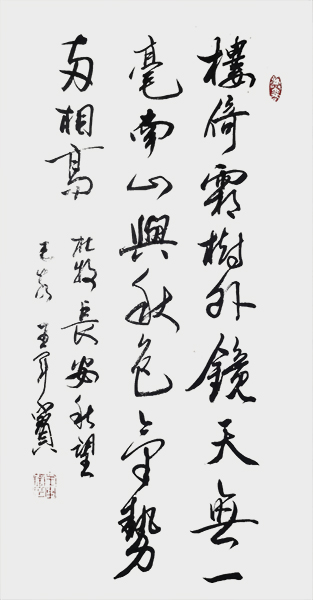 樓倚霜樹外鏡天無一
毫南山與秋色氣勢
兩相高
杜牧長安秋望